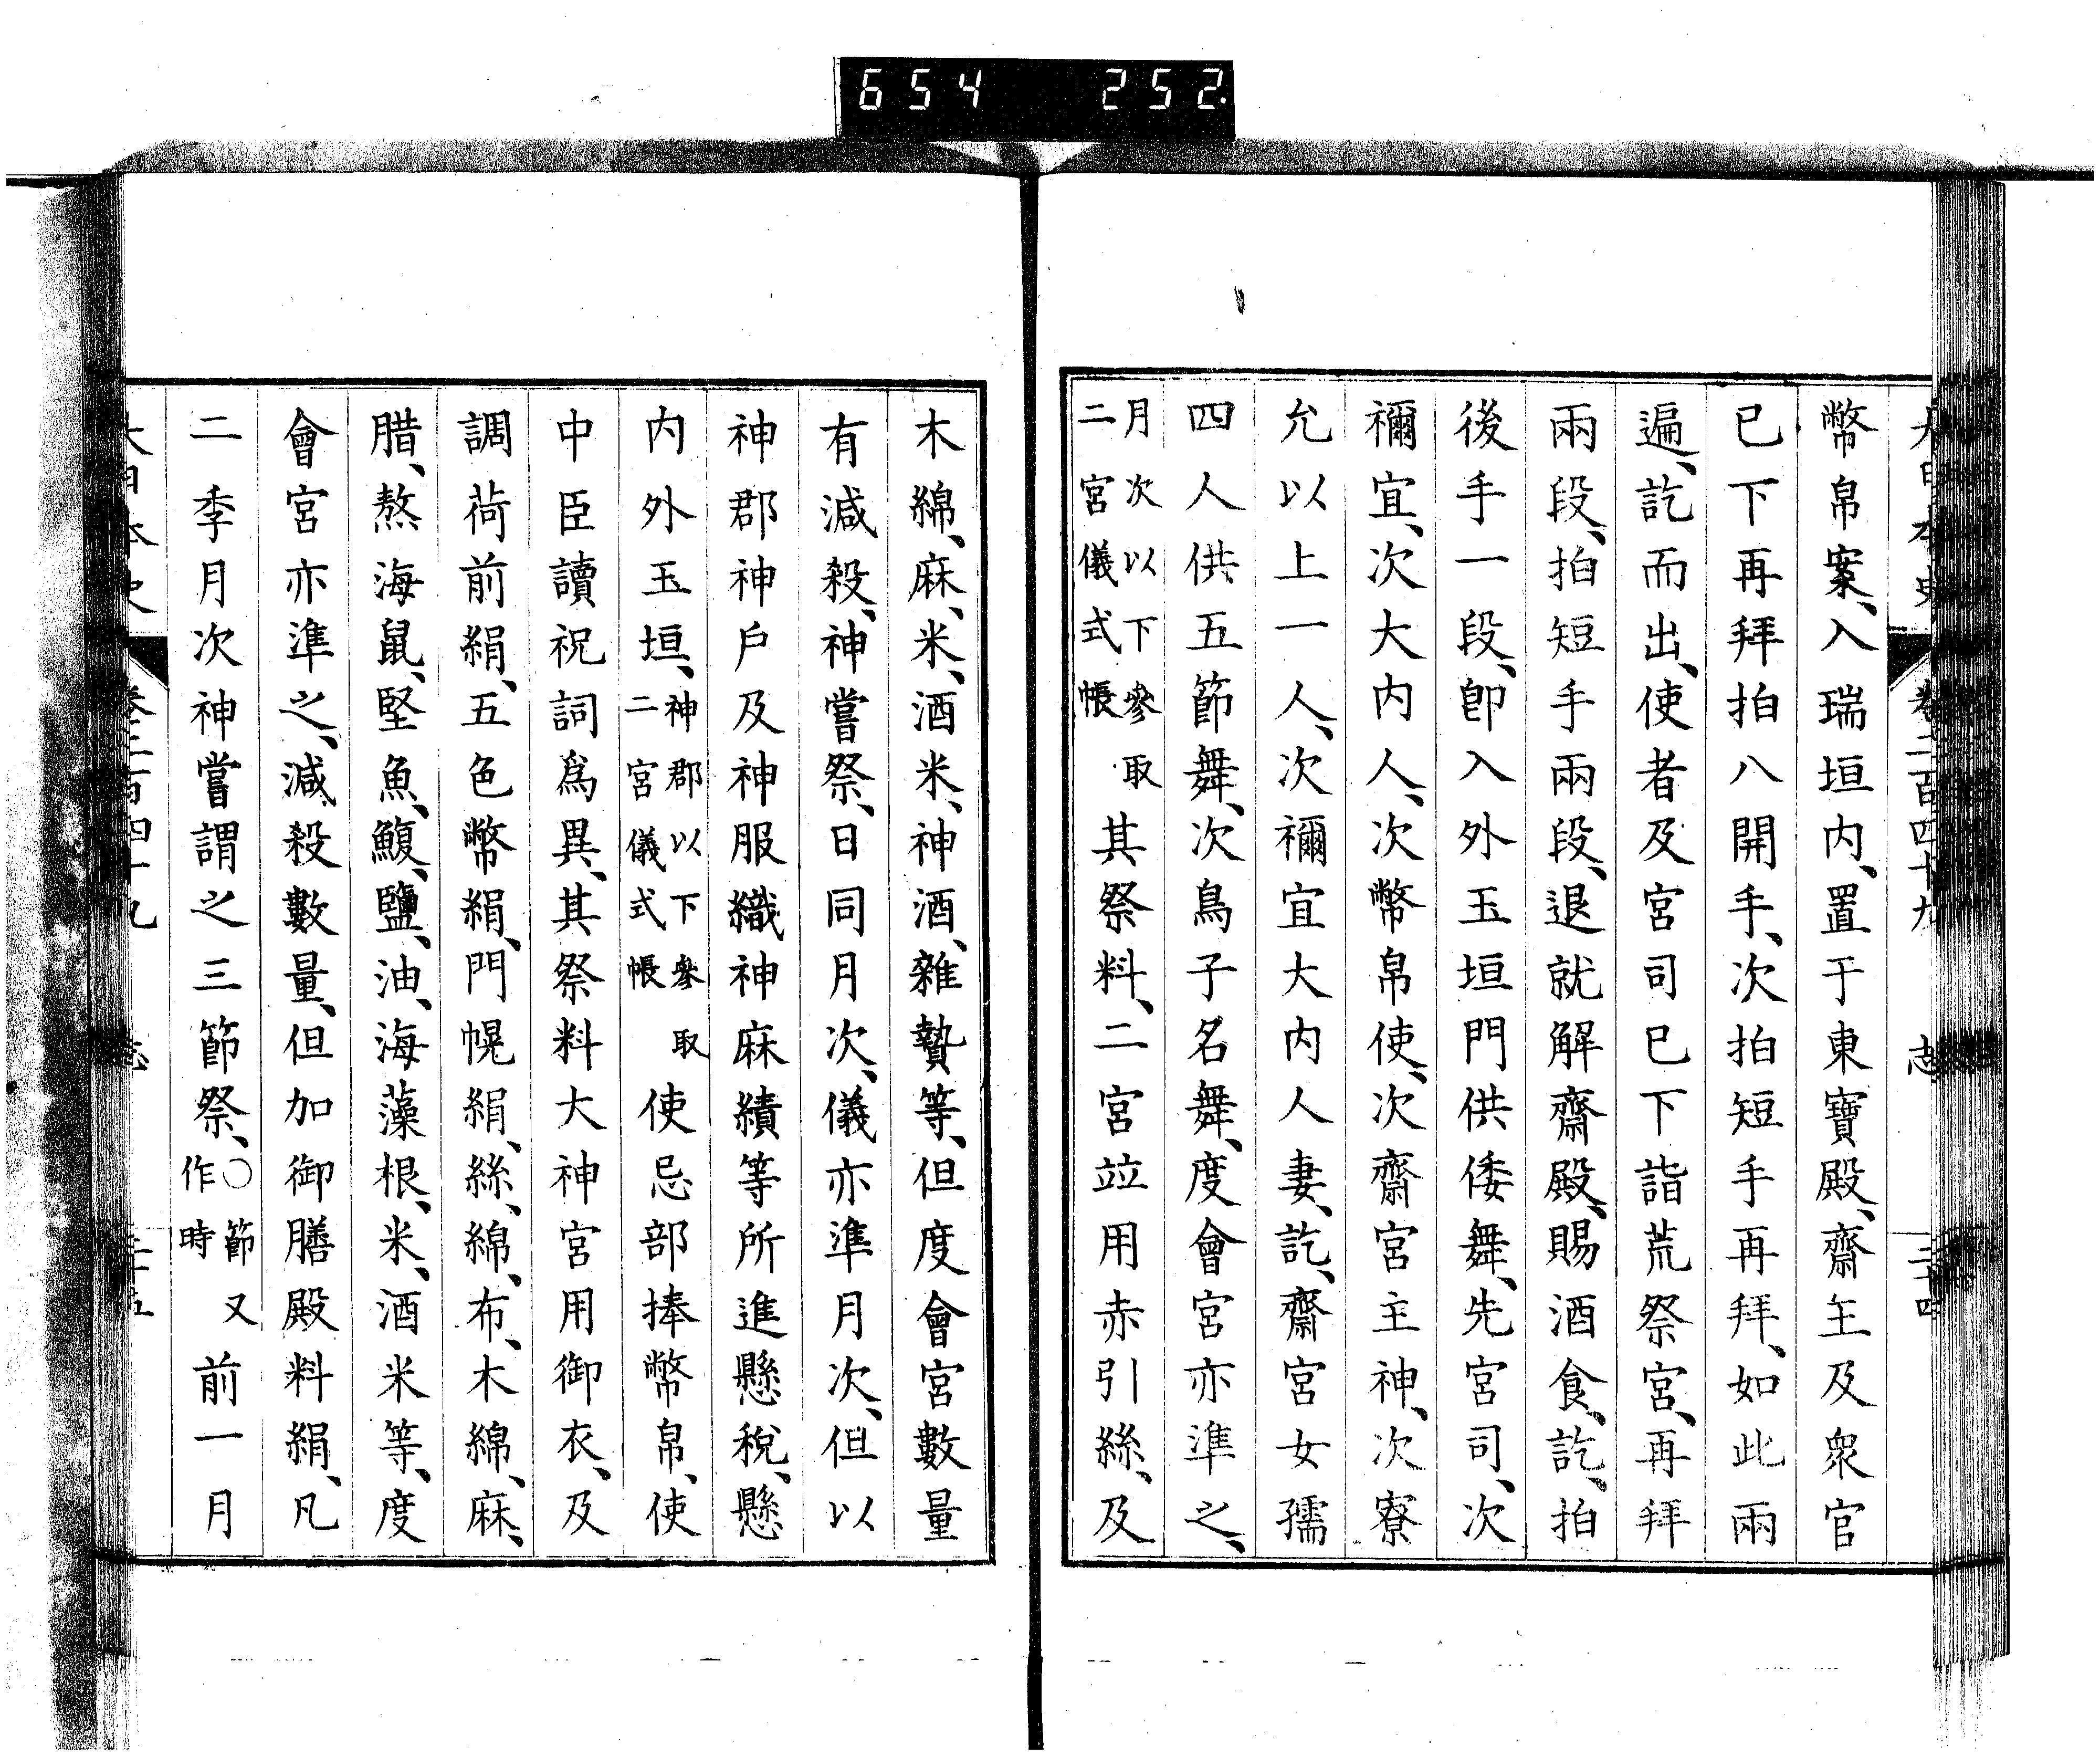 654 252.
大日本史 卷二百四十九 志 三十四
幣帛案、入瑞垣内、置于東寶殿、齋王及衆官
已下再拜拍八開手、次拍短手再拜、如此兩
遍、訖而出、使者及宮司已下詣荒祭宮、再拜
兩段、拍短手兩段、退就解齋殿、賜酒食、訖、拍
後手一段、卽入外玉垣門供倭舞、先宮司、次
禰宜、次大内人、次幣帛使、次齋宮主神、次寮
允以上一人、次禰宜大内人妻、訖、齋宮女孺
四人供五節舞、次鳥子名舞、度會宮亦準之、
月次以下參取二宮儀式帳 其祭料、二宮竝用赤引絲、及
木綿、麻、米、酒米、神酒、雜贄等、但度會宮數量
有減殺、神嘗祭、日同月次、儀亦準月次、但以
神郡神戶及神服織神麻績等所進懸稅、懸
内外玉垣、神郡以下參取二宮儀式帳 使忌部捧幣帛、使
中臣讀祝詞爲異、其祭料大神宮用御衣、及
調荷前絹、五色幣絹、門幌絹、絲、綿、布、木綿、麻、
腊、熬海鼠、堅魚、鰒、鹽、油、海藻根、米、酒米等、度
會宮亦準之、減殺數量、但加御膳殿料絹、凡
二季月次神嘗謂之三節祭、○節又作時 前一月
大日本史 卷二百四十九 志 三十五